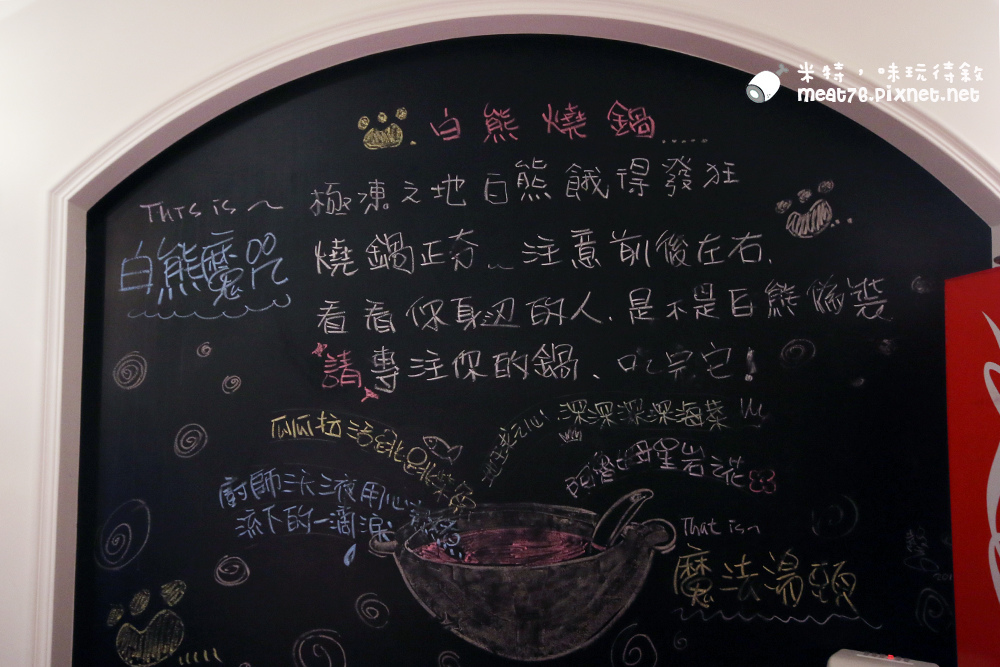 米特，味玩待敘
meat76.pixnet.net
白熊燒鍋.....
This is～
白熊魔咒
極凍之地白熊餓得發狂
燒鍋正夯～注意前後左右.
看看你身边的人.是不是白熊偽裝
請專注你的鍋、吃完它!
瓜瓜拉活跳跳
深深深深海菜
母星岩之花
廚師三汰液用心
滴下的一滴淚
That is～
魔法湯頭